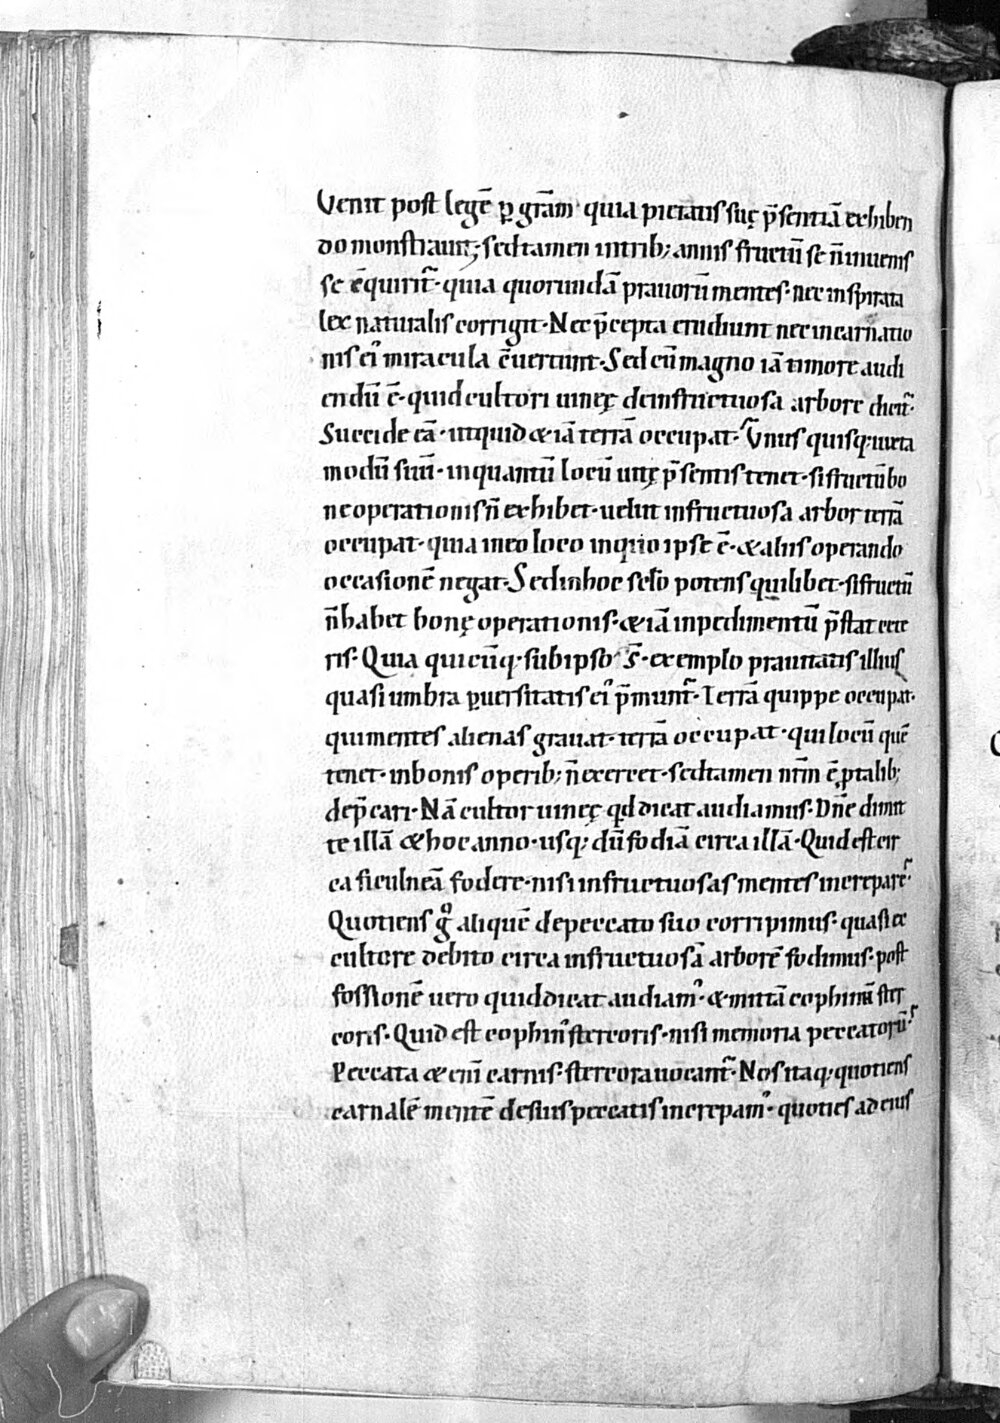 Venit post legē ꝑ grām· quia pietatis suę p̄sentiā exhiben
do monstrauit; sed tamen in trib; annis fructū se n̄ inuenis
se c̄quirit᷑· quia quorundā prauorū mentes· nec inspirata
lex naturalis corrigit· Nec p̄cepta erudiunt nec incarnatio
nis ei᷒ miracula c̄uertunt· Sed cū magno iā timore audi
endū ē· quid cultori uineę de infructuosa arbore dicit᷑·
Succide eā· utquid & iā terrā occupat· Vnus quisq; iuxta
modū suū· inquantū locū uitę p̄sentis tenet· si fructū bo
ne operationis n̄ exhibet· uelut infructuosa arbor terrā
occupat· quia in eo loco in quo ipse ē· & aliis operando
occasionē negat· Sed in hoc sclō potens quilibet· si fructū
n̄ habet bonę operationis· & iā inpedimentū p̄stat cete
ris· Quia quicūq; sub ipso s̄· exemplo prauitatis illius
quasi umbra ꝑuersitatis ei᷒ p̄munt᷑· Terrā quippe occupat·
qui mentes alienas grauat· terrā occupat· qui locū quē
tenet· in bonis operib; n̄ exercet· sed tamen nr̄m ē ꝓ talib;
dep̄cari· Nā cultor uineę qd dicat audiamus· Dn̄e dimit
te illā & hoc anno· usq; dū fodiā circa illā· Quid est cir
ca ficulneā fodere· nisi infructuosas mentes increpare·
Quotiens gͦ aliquē de peccato suo corripimus· quasi ex
culture debito circa infructuosā arborē fodimus· post
fossionē uero quid dicat audiam᷒· & mittā cophinū ster
coris· Quid est cophin᷒ stercoris· nisi memoria peccatorū·
Peccata & enī carnis· stercora uocant᷑· Nos itaq; quotiens
carnalē mentē de suis peccatis increpam᷒· quoties ad eius